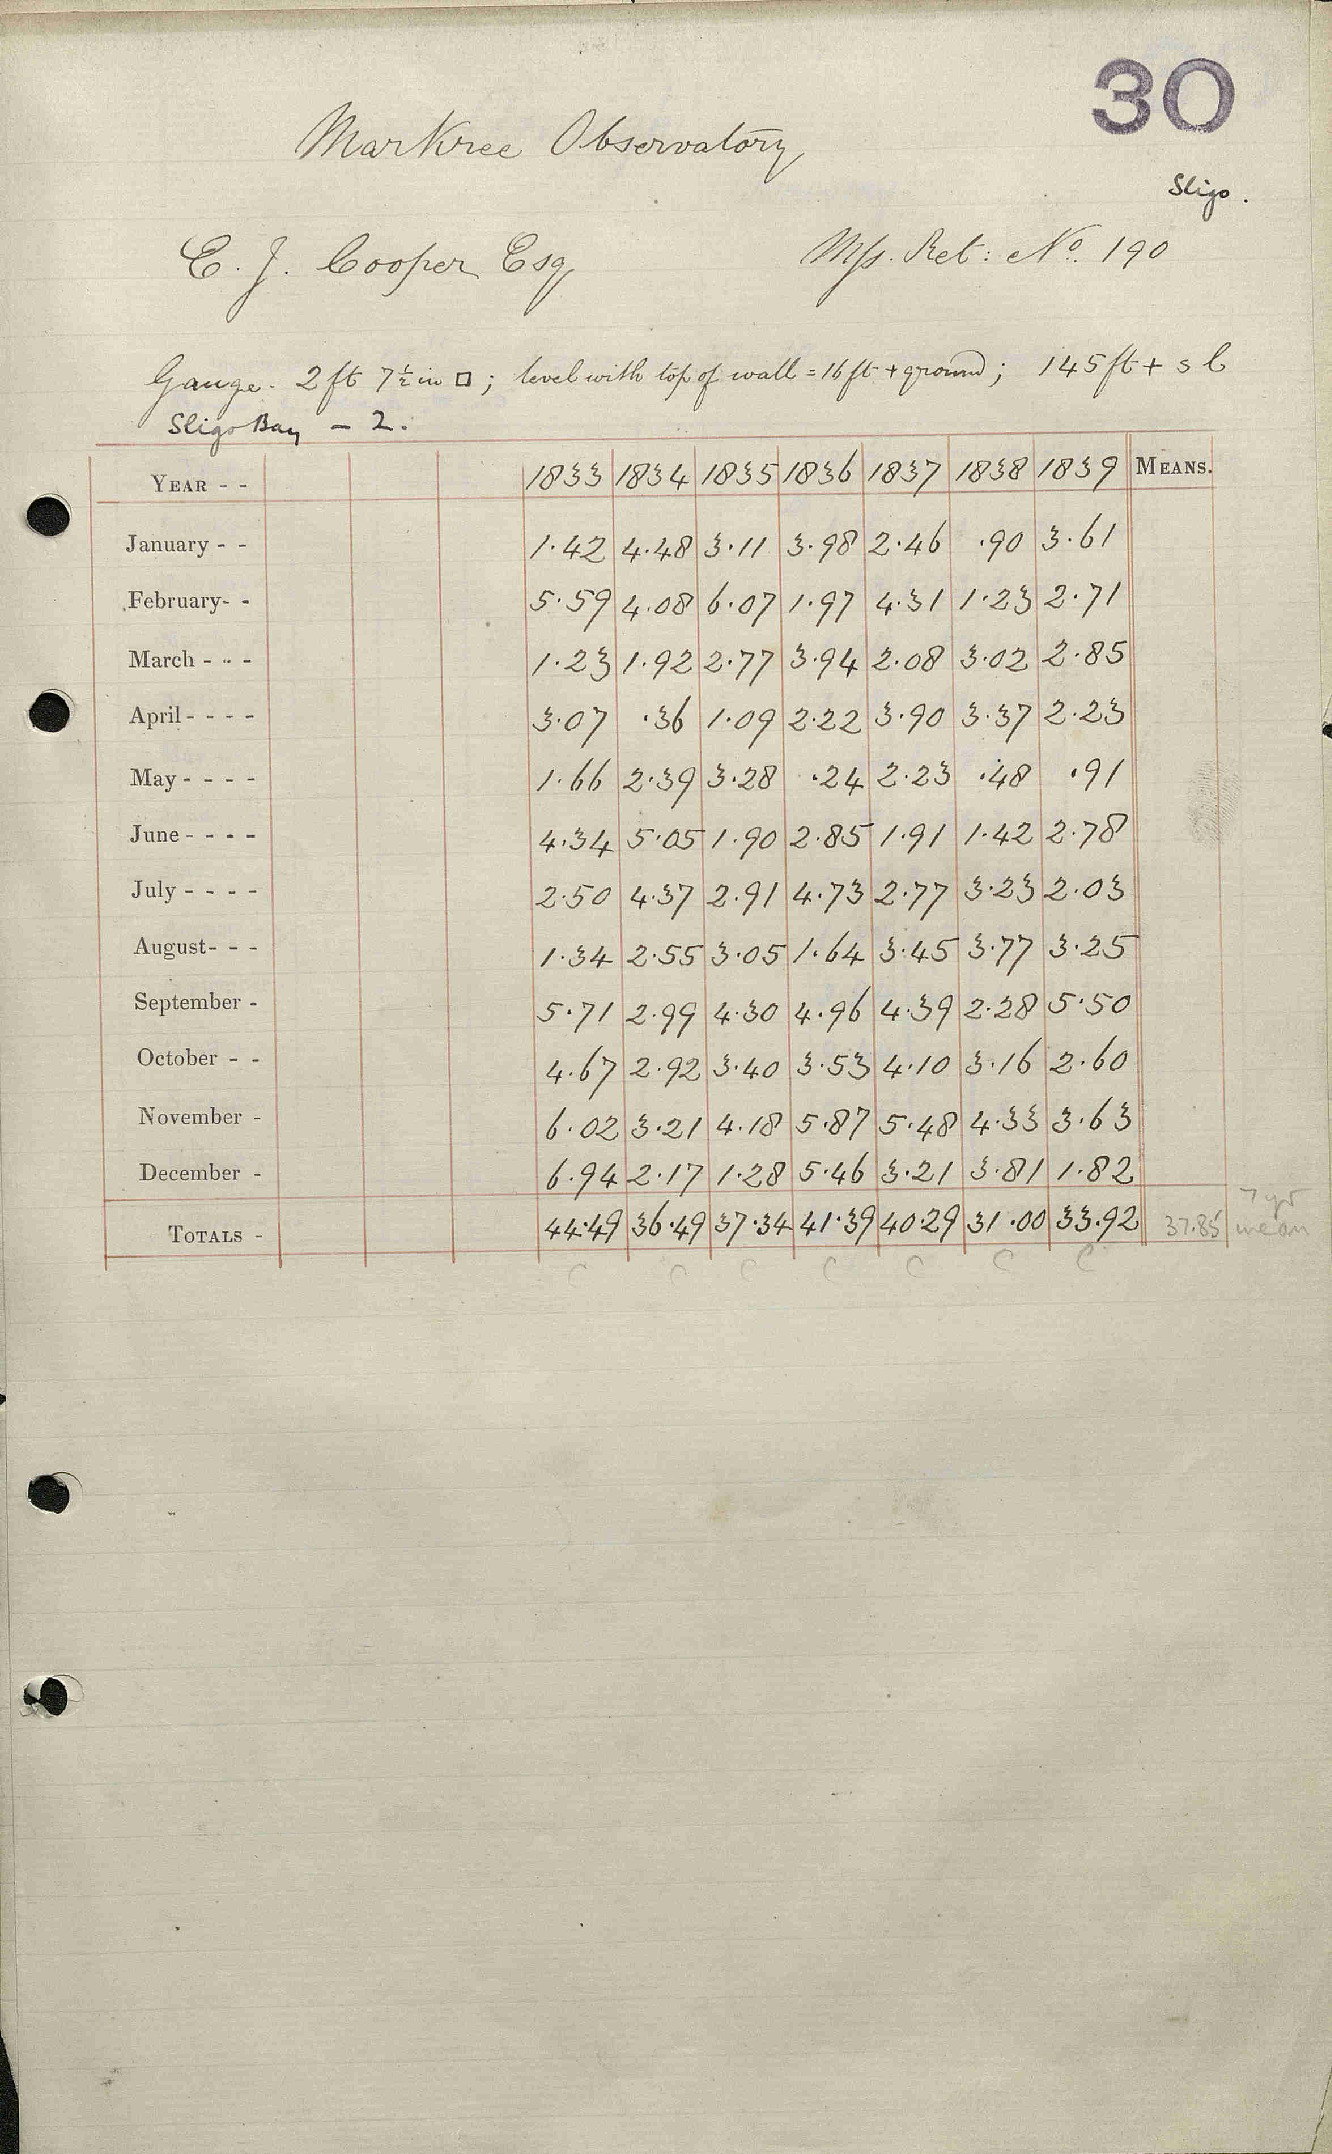 30
Markree Observatory
Sligo.
E. J. Cooper Esq
Mss. Ret: No. 190
Gauge. 2 ft 7½ in □; level with top of wall = 16 ft + ground; 145 ft + s l
Sligo Bay – 2.
YEAR - - 1833 1834 1835 1836 1837 1838 1839 MEANS.
January - - 1.42 4.48 3.11 3.98 2.46 .90 3.61
February- - 5.59 4.08 6.07 1.97 4.31 1.23 2.71
March - - - 1.23 1.92 2.77 3.94 2.08 3.02 2.85
April - - - - 3.07 .36 1.09 2.22 3.90 3.37 2.23
May - - - - 1.66 2.39 3.28 .24 2.23 .48 .91
June - - - - 4.34 5.05 1.90 2.85 1.91 1.42 2.78
July - - - - 2.50 4.37 2.91 4.73 2.77 3.23 2.03
August- - - 1.34 2.55 3.05 1.64 3.45 3.77 3.25
September - 5.71 2.99 4.30 4.96 4.39 2.28 5.50
October - - 4.67 2.92 3.40 3.53 4.10 3.16 2.60
November - 6.02 3.21 4.18 5.87 5.48 4.33 3.63
December - 6.94 2.17 1.28 5.46 3.21 3.81 1.82
TOTALS - 44.49 36.49 37.34 41.39 40.29 31.00 33.92 37.85 7 yr mean
C C C C C C C